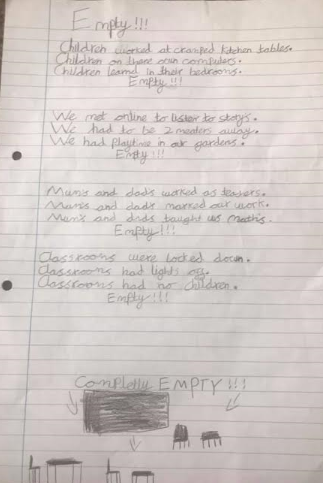 Empty!!!
Children worked at cramped kitchen tables.
Children on there own computers.
Children learnd in their bedrooms.
Empty!!!
We met online to listen to storys.
We had to be 2 meters away.
We had playtime in our gardens.
Empty!!!
Mums and dads worked as teachers.
Mums and dads marked our work.
Mums and dads taught us maths.
Empty!!!
Classrooms were locked down.
Classrooms had lights off.
Classrooms had no children.
Empty!!!
Completly EMPTY!!!